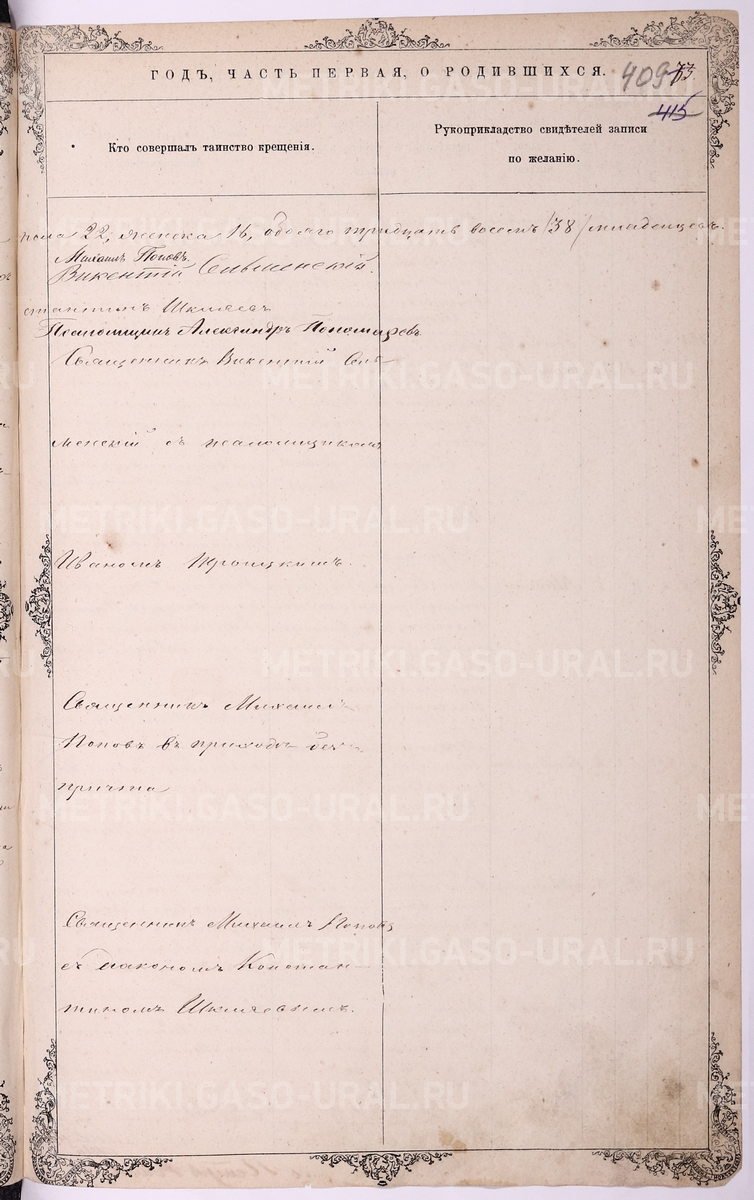 ГОДЪ, ЧАСТЬ ПЕРВАЯ, О РОДИВШИХСЯ.
409 73
415
Кто совершалъ таинство крещенія.
Рукоприкладство свидѣтелей записи
по желанію.
пола 22, женска 16, обоего тридцать восемь /38/ младенцевъ.
Михаилъ Поповъ.
Викентій
стантинъ Шкляевъ
Псаломщикъ Александръ Пономаревъ
Священникъ Викентій
менскій съ псаломщикомъ
Иваномъ Троицкимъ.
Священникъ Михаилъ
Поповъ въ приходѣ безъ
причта
Священникъ Михаилъ Поповъ
съ діакономъ Констан-
тиномъ Шкляевымъ.
METRIKI.GASO-URAL.RU